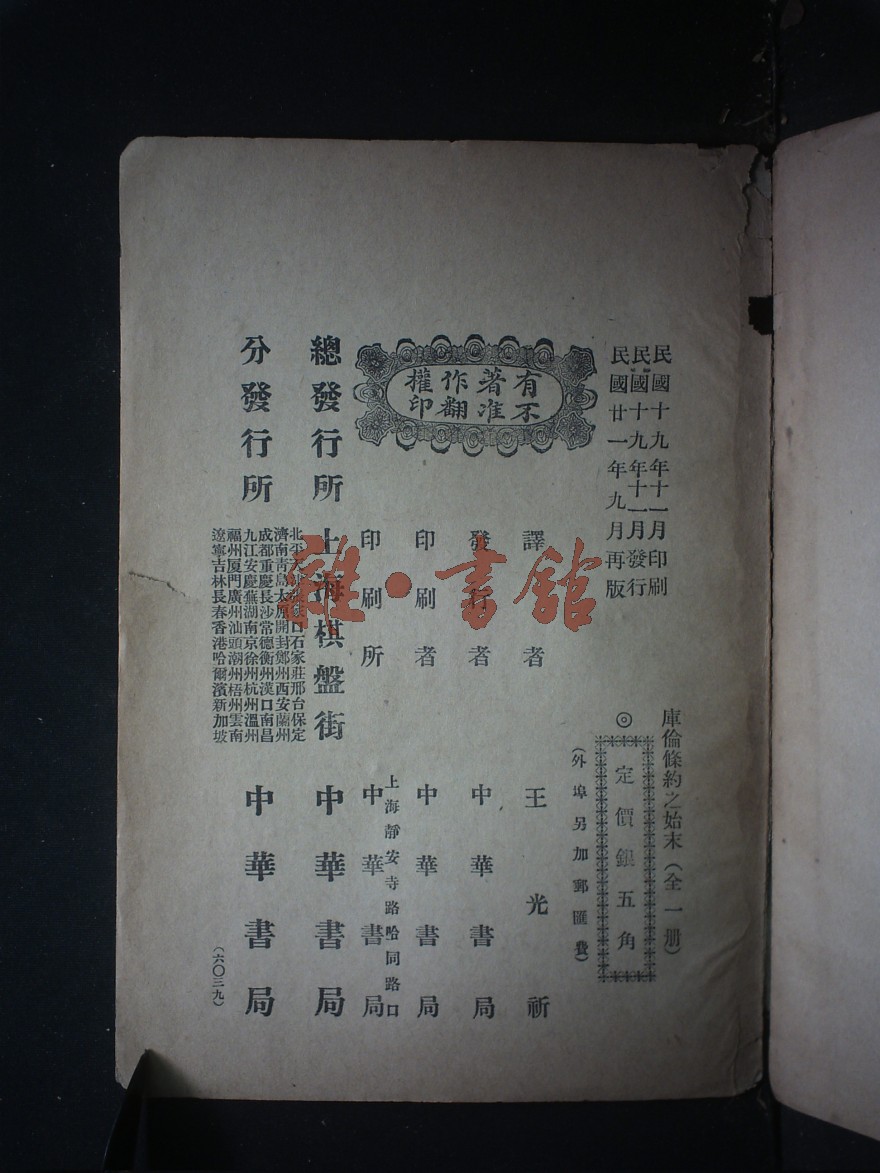 民國十九年十一月印刷
民國十九年十一月發行
民國廿一年九月再版
庫倫條約之始末（全一册）
◎定價銀五角
（外埠另加郵匯費）
有著作權
不准翻印
譯者 王光祈
發行者 中華書局
印刷者 中華書局
上海靜安寺路哈同路口
印刷所 中華書局
總發行所 上海棋盤街 中華書局
分發行所 中華書局
口石家莊邢台保定
濟南青島太原開封鄭州西安蘭州
成都重慶長沙常德衡州漢口南昌
九江安慶蕪湖南京徐州杭州溫州
福州厦門廣州汕頭潮州梧州雲南
遼寧吉林長春香港哈爾濱新加坡
（六〇三九）
雜·書館